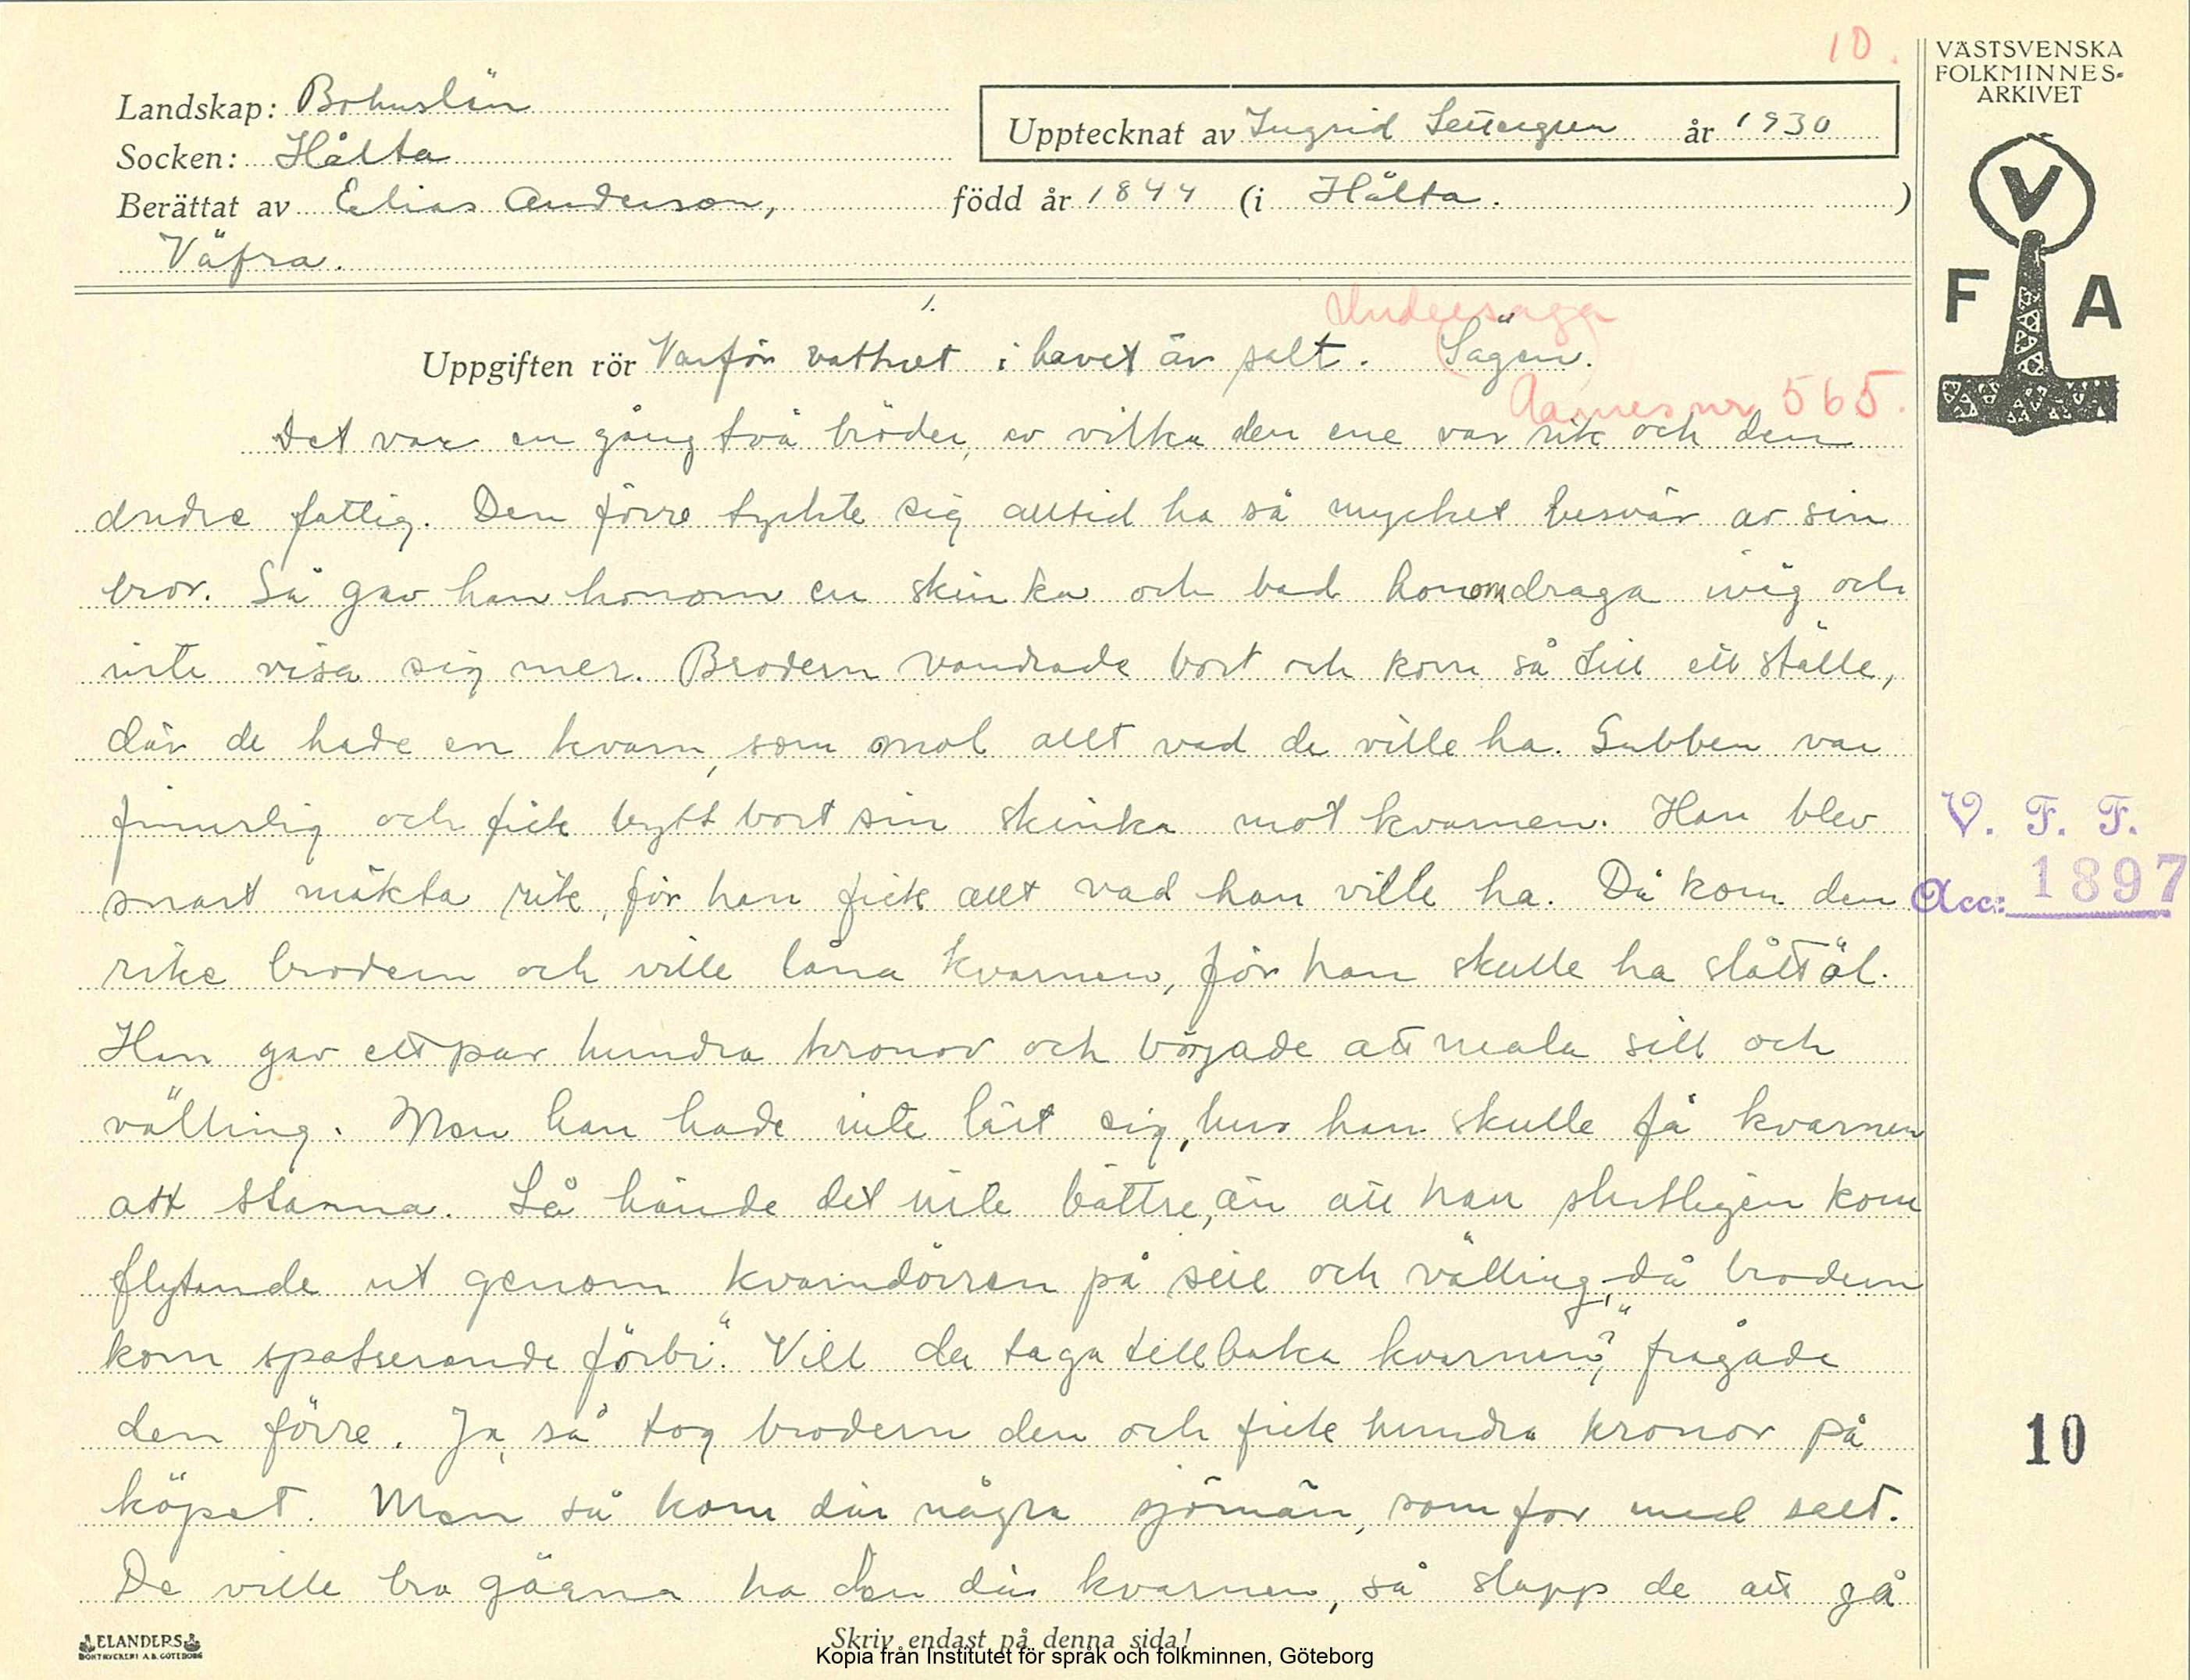 10.
VÄSTSVENSKA
FOLKMINNES-
ARKIVET
Landskap: Bohuslän
Upptecknat av Ingrid Settergren år 1930
Socken: Hålta
Berättat av Elias Anderson, född år 1844 (i Hålta. )
Väfra.
V
F A
1.
Undersaga
Uppgiften rör Varför vattnet i havet är salt. (Sägen.)
Aarnes nr 565.
Det var en gång två bröder, av vilka den ene var rik och den
andre fattig. Den förre tyckte sig alltid ha så mycket besvär av sin
bror. Så gav han honom en skinka och bad honom draga iväg och
inte visa sig mer. Brodern vandrade bort och kom så till ett ställe,
där de hade en kvarn, som mol allt vad de ville ha. Gubben var
finurlig och fick bytt bort sin skinka mot kvarnen. Han blev
snart mäkta rik, för han fick allt vad han ville ha. Då kom den
rike brodern och ville låna kvarnen, för han skulle ha slåttäöl.
Han gav ett par hundra kronor och började att mala sill och
välling. Men han hade inte lärt sig, hur han skulle få kvarnen
att stanna. Så hände det inte bättre, än att han slutligen kom
flytande ut genom kvarndörren på sill och välling, då brodern
kom spatserande förbi. "Vill du taga tillbaka kvarnen?", frågade
den förre. Ja, så tog brodern den och fick hundra kronor på
köpet. Men så kom där några sjömän, som for med salt.
De ville bra gärna ha den där kvarnen, så slapp de att gå
V. F. F.
Acc: 1897
10
ELANDERS
BOKTRYCKERI A.B. GÖTEBORG
Skriv endast på denna sida!
Kopia från Institutet för språk och folkminnen, Göteborg